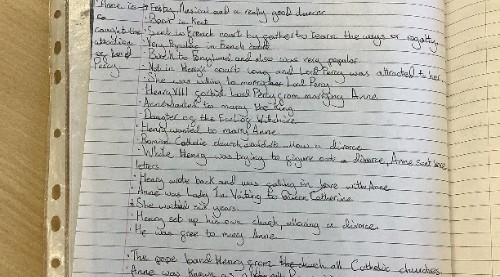 Anne is → Feisty, Musical and a really good dancer
• Born in Kent
• Sent to French court by father to learn the ways of royalty
• Very Popular in French court
• Back to England and also was very popular
• Not in Henry's court long and Lord Percy was attracted to her
• She was willing to marry her Lord Percy
• Henry VIII forbid Lord Percy from marrying Anne
to marry the King
• Daughter of the Earl of Wiltshire
• Henry wanted to marry Anne
• Roman Catholic church wouldn't allow a divorce
• While Henry was trying to figure out a divorce, Anne sent love
letters
• Henry wrote back and was falling in love with Anne
• Anne was Lady In Waiting to Queen Catherine
• She waited six years
• Henry set up his own church, allowing a divorce
• He was free to marry Anne
• The pope band Henry from the church all Catholic churches
• Anne was known as a